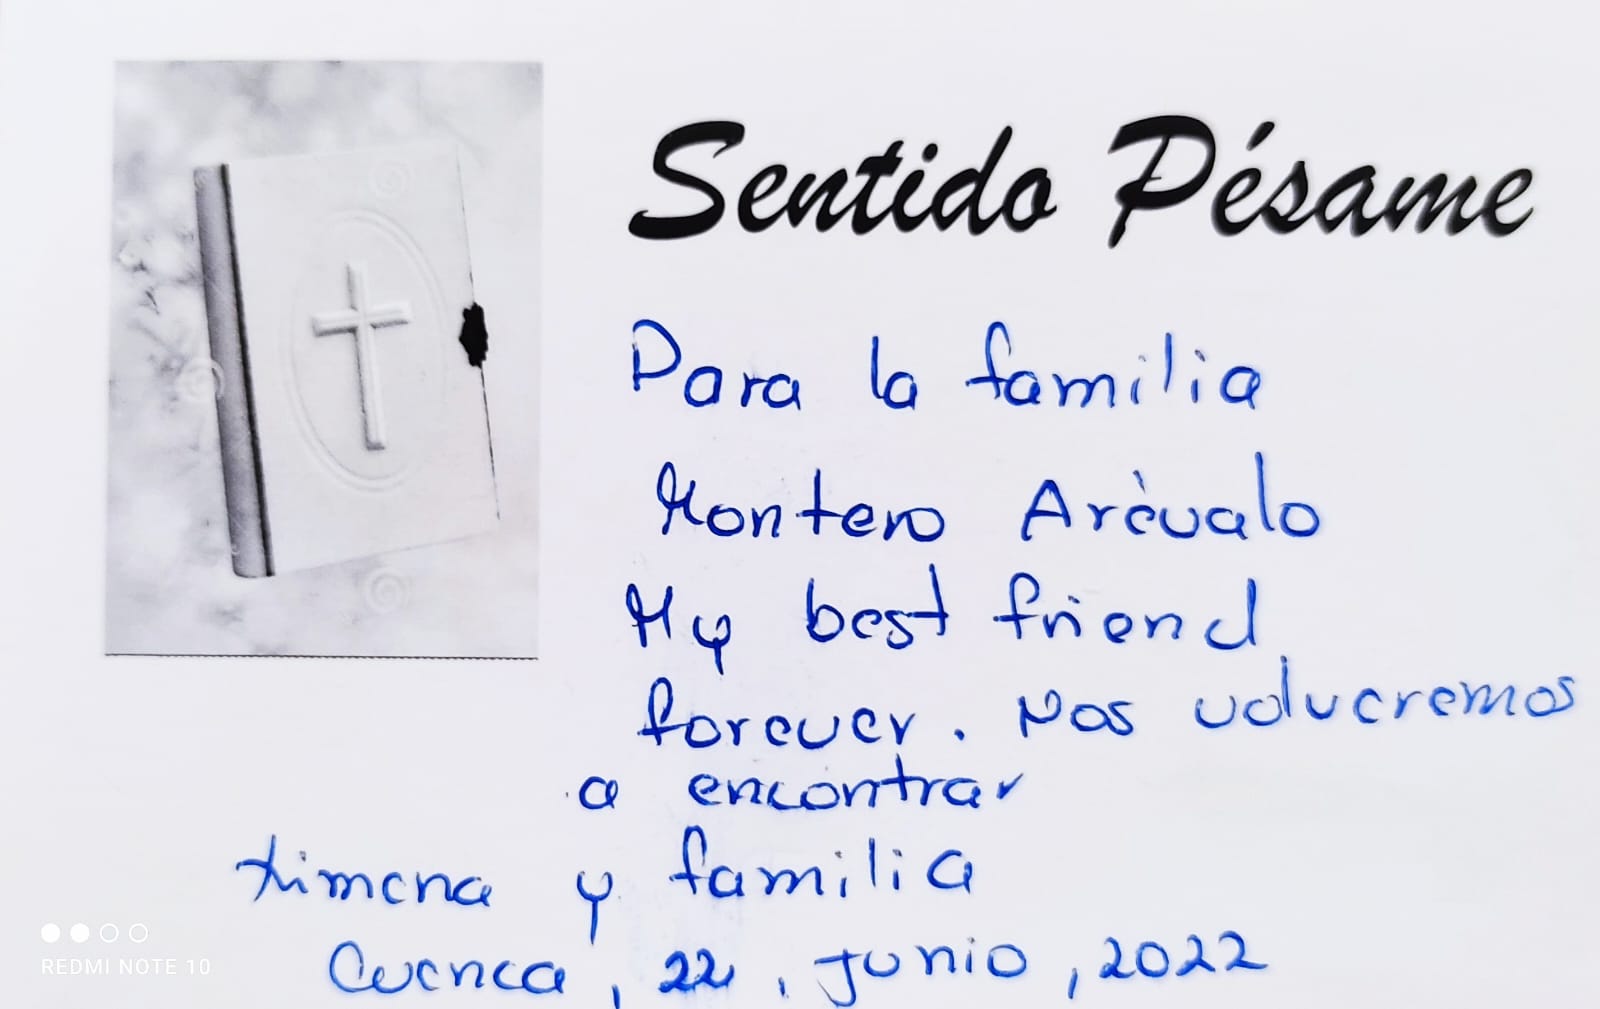 Sentido Pésame
Para la familia
Montero Arèvalo
My best friend
forever. Nos volveremos
a encontrar
Ximena y familia
Cuenca, 22, Junio, 2022
REDMI NOTE 10